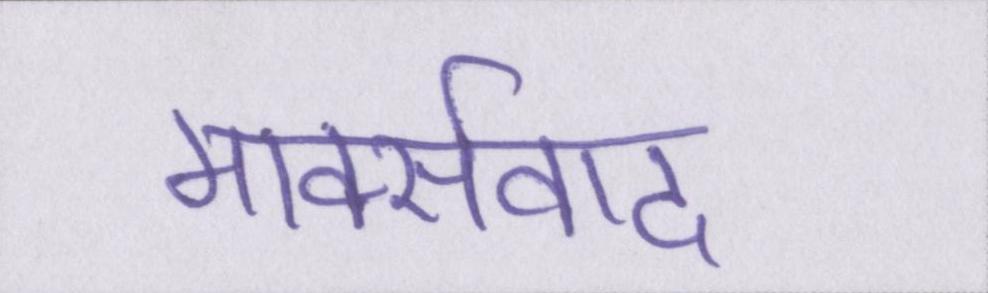 मार्क्सवाद